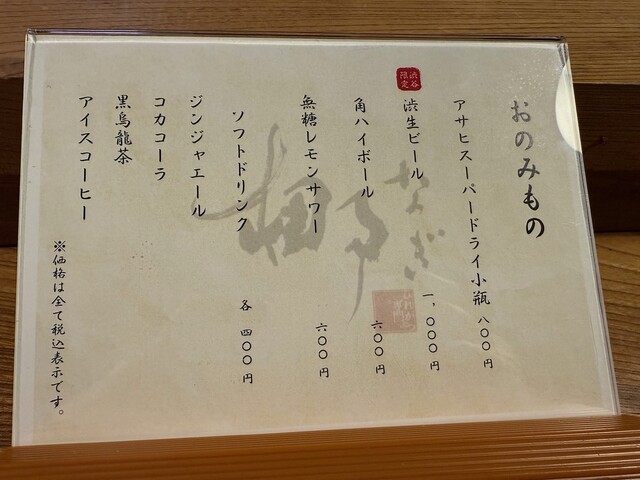 おのみもの
アサヒスーパードライ小瓶 八〇〇円
渋谷限定
渋生ビール 一,〇〇〇円
角ハイボール 六〇〇円
無糖レモンサワー 六〇〇円
ソフトドリンク 各 四〇〇円
ジンジャエール
コカコーラ
黒烏龍茶
アイスコーヒー
※価格は全て税込表示です。